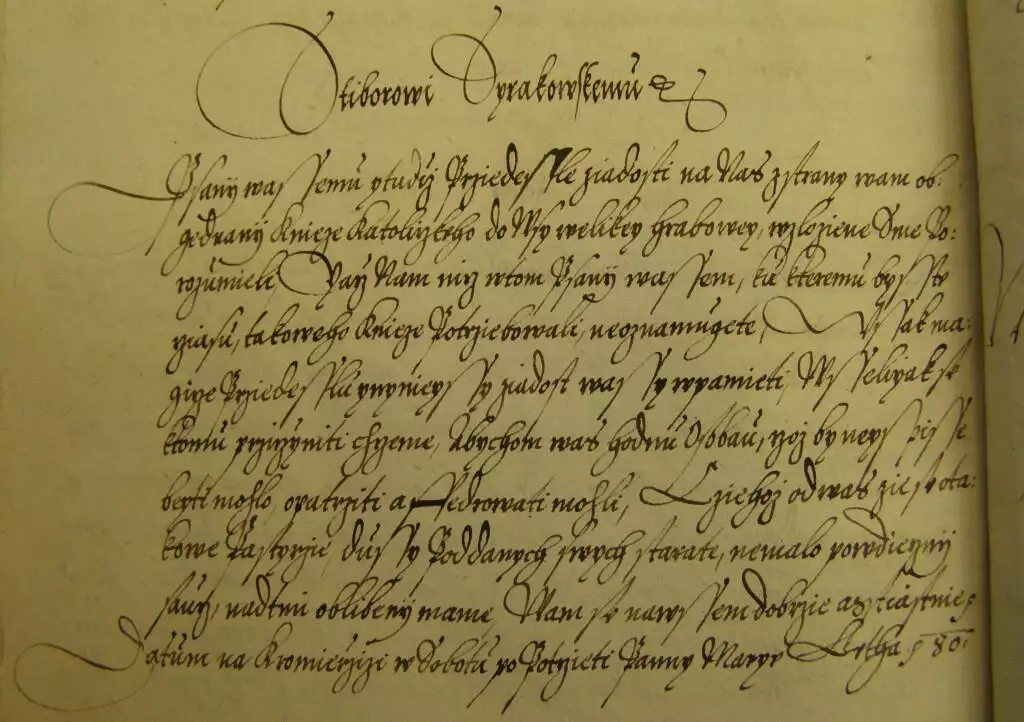 Stiborowi Syrakowskemu etc
Psanij wassemu ytudiz Przedessle ziadosti na Nas zstrany wam ob:
gednanij Knieze Katolizkeho do Wsy welikey hrabowey, wzloziene Sme Po:
rozumieli, Nay Nam niz wtom Psanij wassem, ku kteremu bysste
cziasu, takoweho Knieze Potrziebowali, neoznamugete, Wssak ma:
gize Przedesslu ynynieyssy ziadost wassy wpamieti, Wsseliyak se
ktomu przicziniti chzeme, Abychom was hodnu Osobau, czoz by neysspisse
beyti mohlo, opatrziti a ffedrowati mohli, Cziehoz odwas zie se ota:
kowe Pastyrzie, dussy Poddanych swych starate, nemalo powdieczni
saucz, nadtmi oblibeny mame, Wam se nawssem dobrzie asstiastnie
Datum na Kromierzizi w Sobotu po Potzieti Panny Maryy Letha 80: